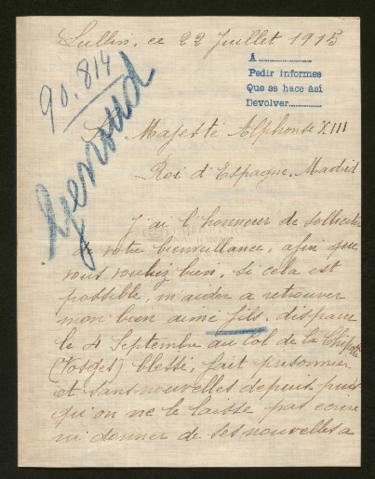 Lullin, ce 22 Juillet 1915
A
Pedir informes
Que se hace así
Devolver
90.814
Genoud
Sa Majesté Alphonse XIII
Roi d'Espagne, Madrid
J'ai l'honneur de solliciter
votre bienveillance, afin que
vous vouliez bien, si cela est
possible, m'aider a retrouver
mon bien aimé fils, disparu
le 4 Septembre au col de la Chipotte
(Vosges) blessé, fait prisonnier
et sans nouvelles depuis, puis
qu'on ne le laisse pas ecrire
ni donner de ses nouvelles a